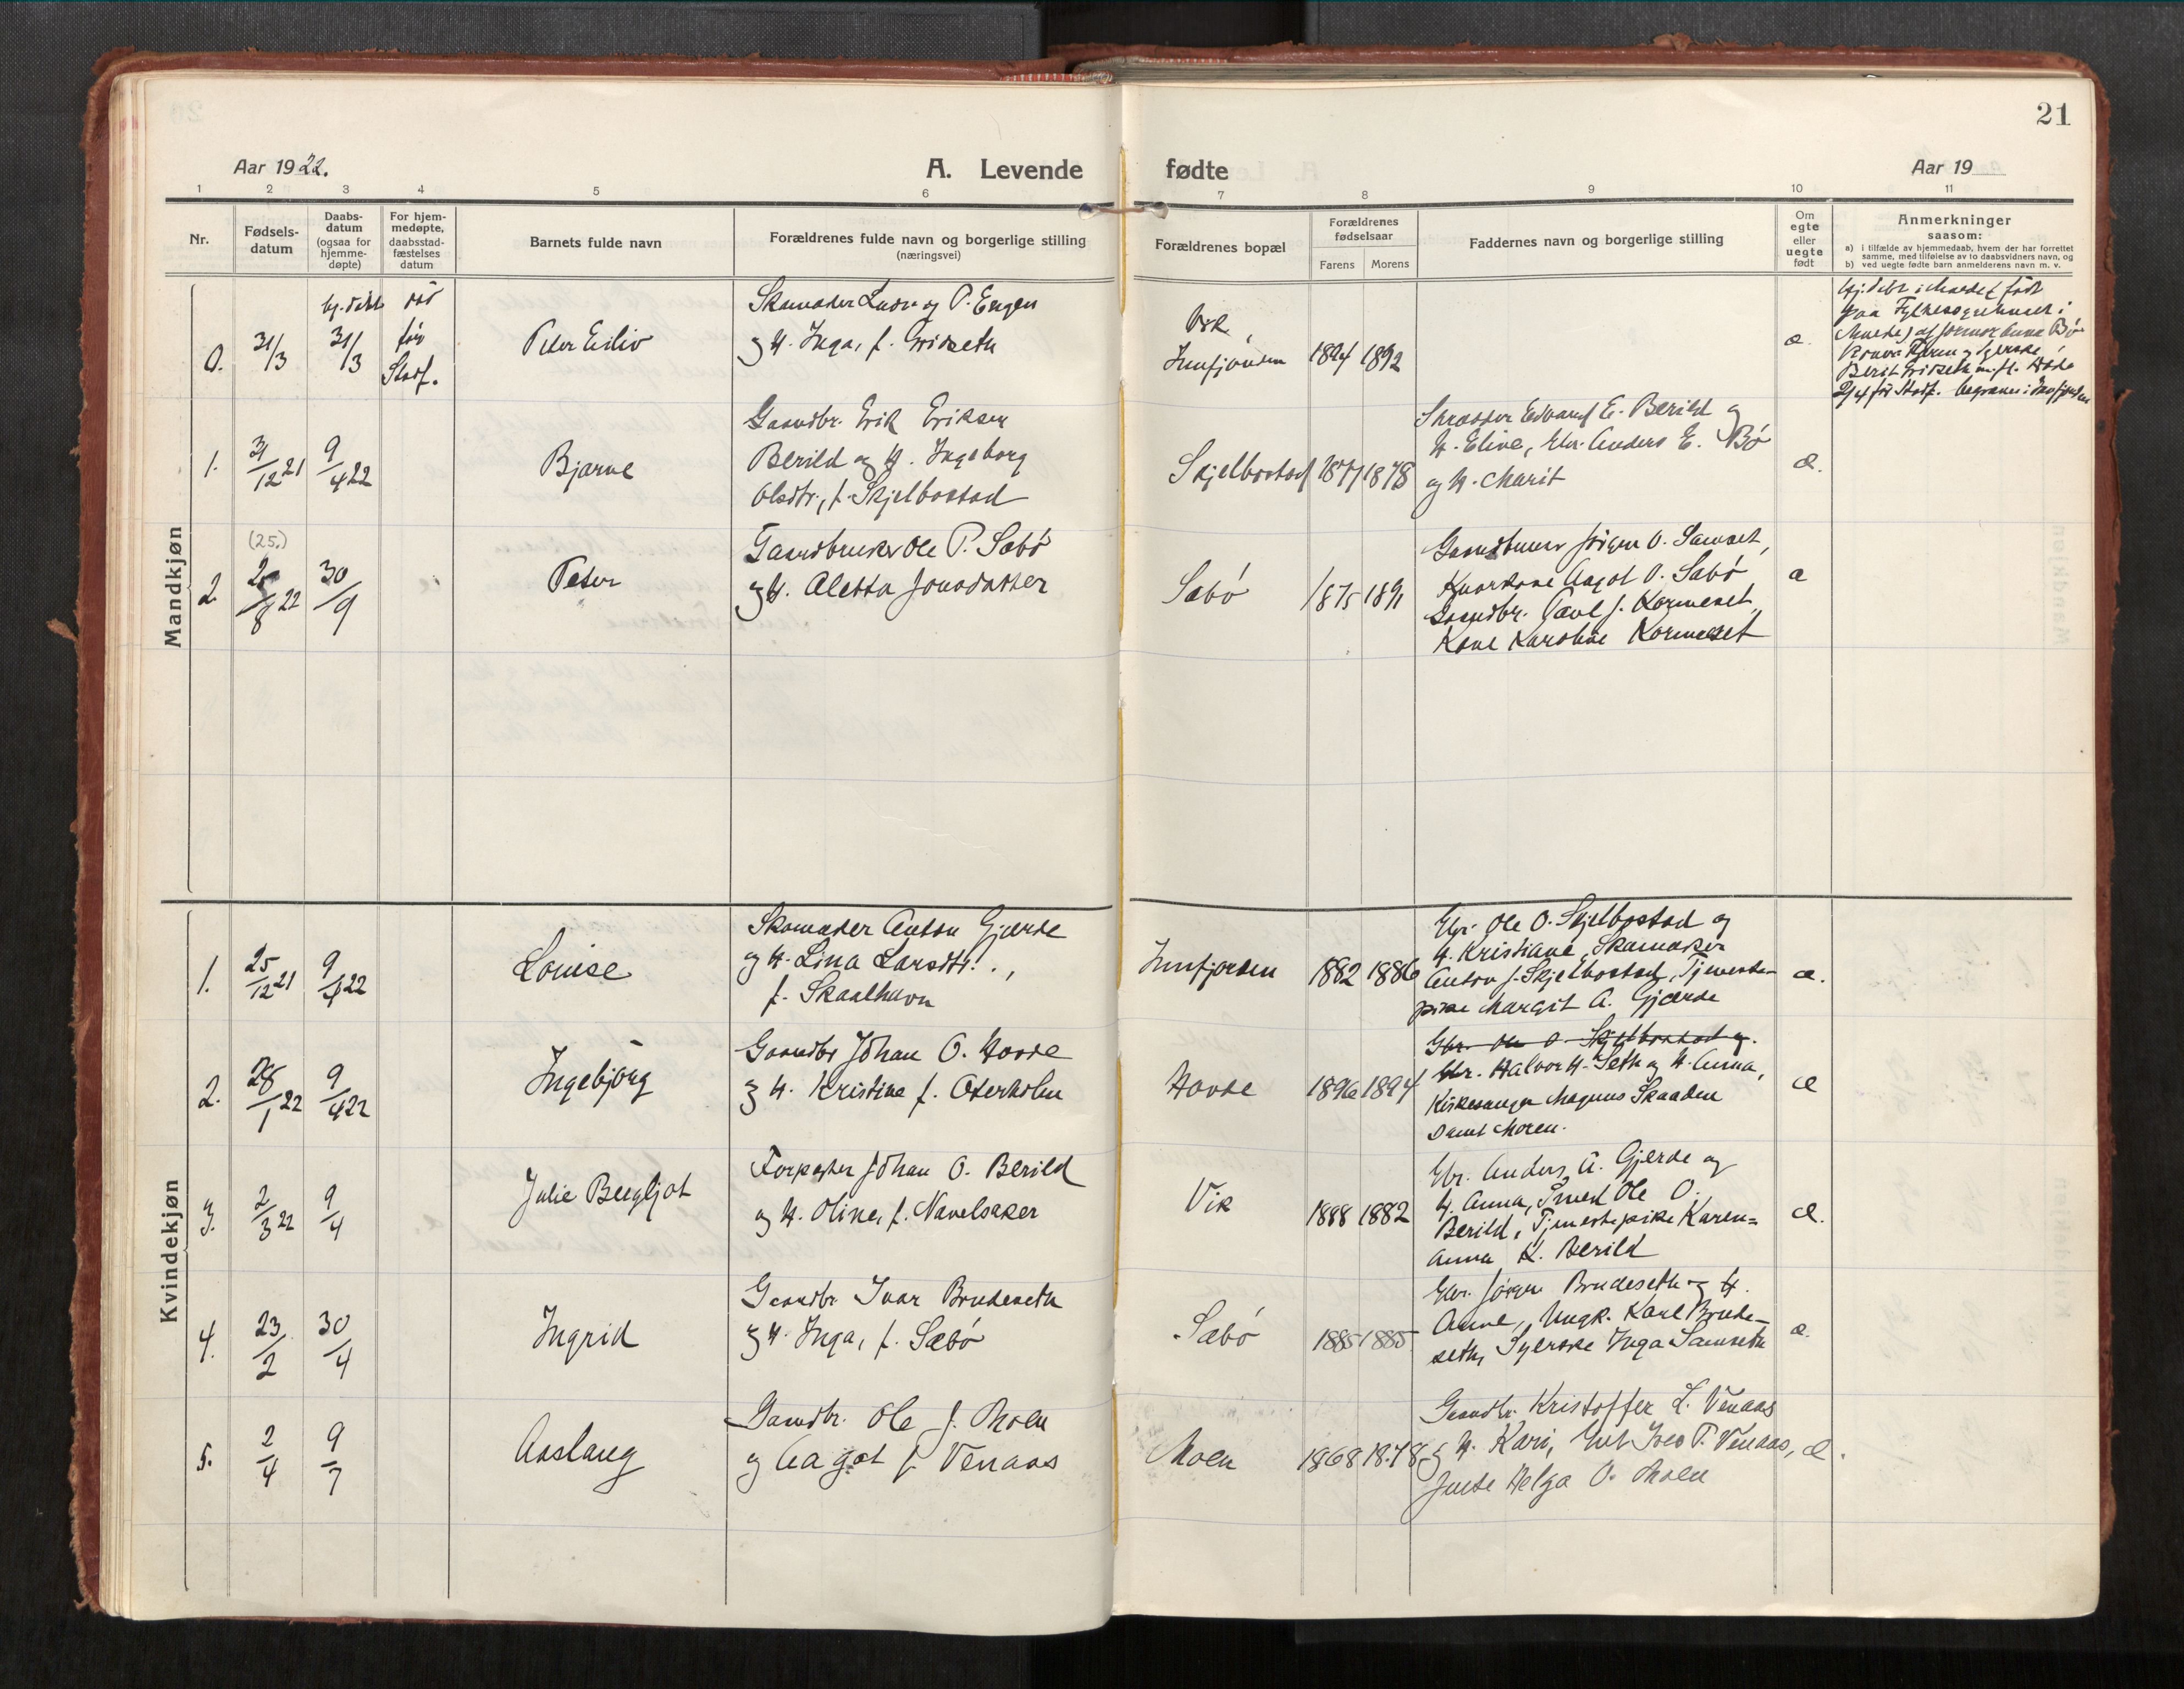 21
Aar 1922.
A. Levende fødte
Aar 19
1 2 3 4 5 6 7 8 9 10 11
Nr.
Fødsels-
datum
Daabs-
datum
(ogsaa for
hjemme-
døpte)
For hjem-
medøpte,
daabsstad-
fæstelses
datum
Barnets fulde navn
Forældrenes fulde navn og borgerlige stilling
(næringsvei)
Forældrenes bopæl
Forældrenes
fødselsaar
Farens Morens
Faddernes navn og borgerlige stilling
Om
egte
eller
uegte
født
Anmerkninger
saasom:
a) i tilfælde av hjemmedaab, hvem der har forrettet
samme, med tilføielse av to daabsvidners navn, og
b) ved uegte fødte barn anmelderens navn m. v.
Mandkjøn
0.
31/3
hj. døbt
31/3
død
før
Stadf.
Peter Eiliv
Skomaker P. Engen
og H. Inga, f. Gridseth
Vik,
Innfjorden
1894 1892
æ.
Berit Gridseth
2/4 før Stadf. begravet i Innfjorden
1.
31/12 21
9/4 22
Bjarne
Gaardbr. Erik Eriksen
Berild og H. Ingeborg
Olsdtr., f. Skjelbostad
Skjelbostad
1877 1878
Edvard E. Berild og
H. Eline, Gbr. Anders E. Bø
og H. Marit
æ.
2.
(25.)
25/8 22
30/9
Peter
Gaardbruker Ole P. Sæbø
og H. Aletta Jonsdatter
Sæbø
1875 1891
Gaardbruker Jörgen O. Samset,
Aagot O. Sæbø
Gaardbr. Paul J. Kormeset,
Kone Karoline Kormeset
æ
Kvindekjøn
1.
25/12 21
9/4 22
Louise
Skomaker Anton Gjerde
og H. Lina Larsdtr.,
f. Skaalhavn
Innfjorden
1882 1886
Gbr. Ole O. Skjelbostad og
H. Kristiane, Skomaker
Anton J. Skjelbostad, Tjeneste-
pike Margit A. Gjærde
æ.
2.
28/1 22
9/4 22
Ingebjörg
Gaardbr Johan O. Hovde
og H. Kristine f. Oterholm
Hovde
1896 1894
Gbr. Ole O. Skjelbostad og.
Gbr. Halvor H. Seth og H. Anna,
Kirkesanger Magnus Skaaden
samt Moren.
æ
3.
2/3 22
9/4
Julie Bergljot
Forpagter Johan O. Berild
og H. Oline, f. Navelsaker
Vik
1888 1882
Gbr. Anders A. Gjerde og
H. Anna, Smed Ole O.
Berild, Tjenestepike Karen=
Anna K. Berild
æ.
4.
23/2
30/4
Ingrid
Gaardbr Ivar Brudeseth
og H. Inga, f. Sæbø
Sæbø
1885 1885
Gbr. Jörgen Brudeseth og H.
Anne, Ungk. Karl Brude-
seth, Syerske Inga Samseth
æ.
5.
2/4
9/7
Aaslaug
Gaardbr. Ole J. Moen
og Aagot f. Venaas
Moen
1868 1878
Gaardbr. Kristoffer L. Venaas
og H. Kari, P. Venaas,
Helga O. Moen
æ.